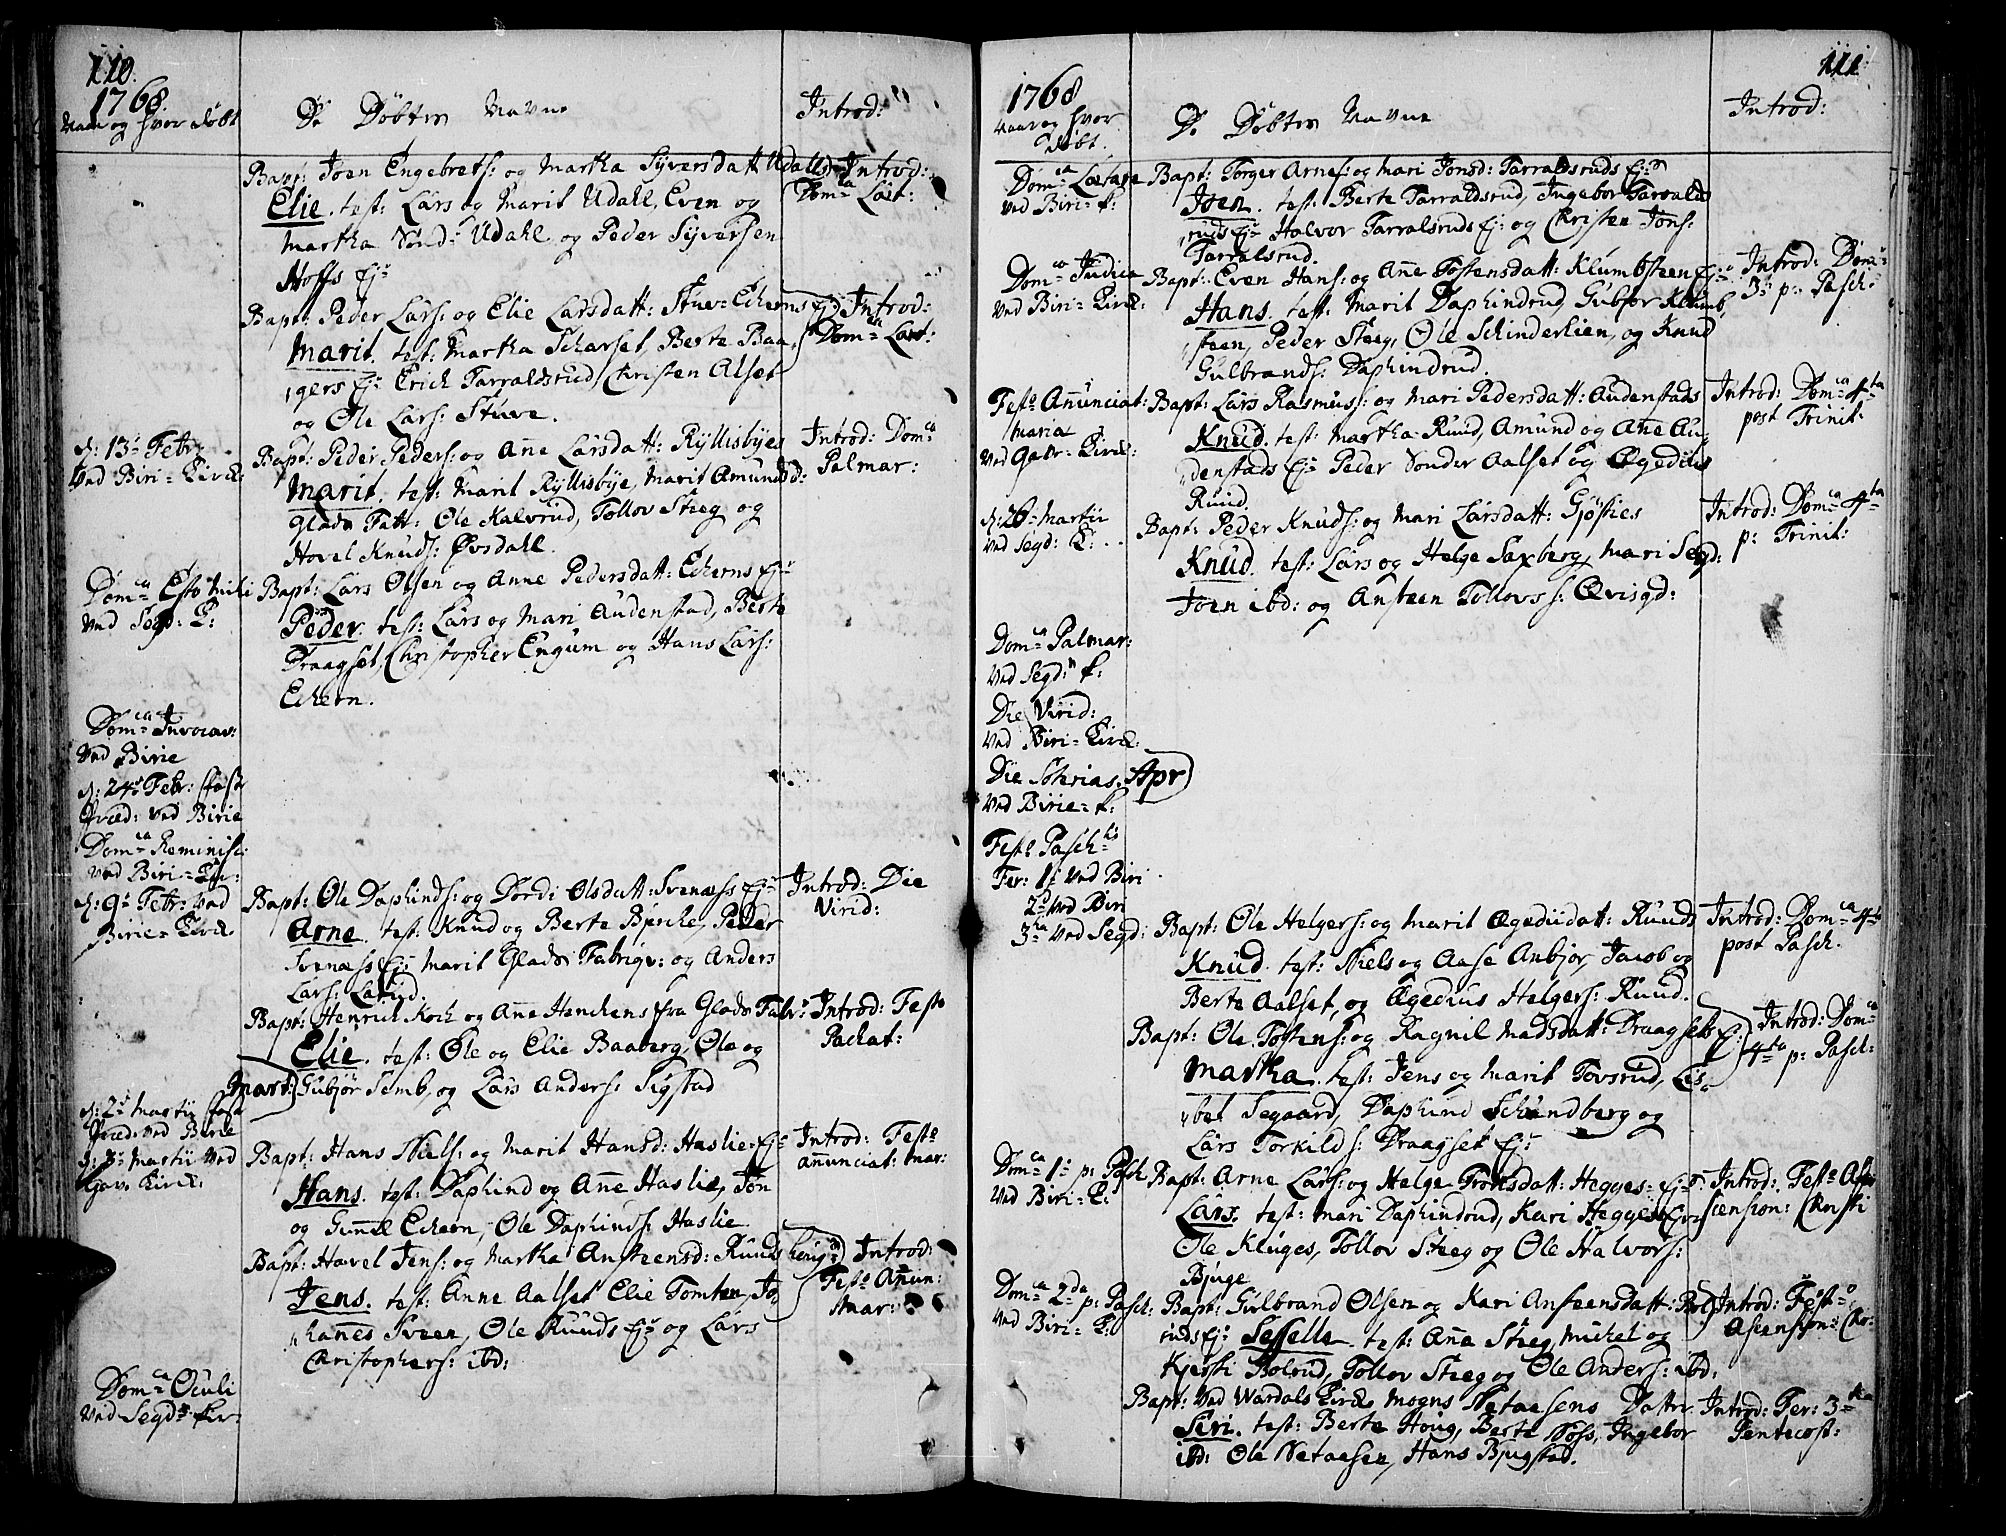 110.
1768.
Naar og hvor døbt
De Døbtes Navne
Introd:
Bapt: Joen Engebrets: og Martha Syversdatt: Udahls
Elie. test: Lars og Marit Udahl, Even og
Martha Sønd: Udahl og Peder Syversen
Hoffs Ej:
Introd:
Dom: Læt:
Bapt: Peder Lars: og Elie Larsdatt: Stue-Echerns Ej:
Marit. test: Martha Scharset, Berte Baa-
gers Ej: Erich Tarraldsrud, Christen Alset
og Ole Lars: Stuve.
Introd:
Dom: Læt:
d: 13 Febr:
Ved Biri-Kirke:
Bapt: Peder Peders: og Anne Larsdatt: Ryllisbyes
Marit. test: Marit Ryllisbye, Marit Amundsd:
Glads Fabr: Ole Kalvrud, Tollov Steeg og
Hovel Knuds: Øvsdahl.
Introd: Dom:
Palmar:
Dom: Esto Mihi
Ved Segd: K:
Bapt: Lars Olsen og Anne Pedersdatt: Echerns Ej:
Peder. test: Lars og Mari Audenstad, Berte
Draagset, Christopher Engum og Hans Lars:
Echern.
Dom: Invocav:
Ved Birie
d: 24 Febr: faste
Præd: ved Birie
Dom: Reminisc:
ved Biri-Kir:
d: 9 Febr: ved
Birie-Kirke
Bapt: Ole Daphinds: og Dordi Olsdatt: Svenæss Ej:
Arne. test: Knud og Berte Bjerche, Peder
Svenæss Ej: Marit Glads Fabriqv: og Anders
Lars: Larud.
Introd: Die
Virid:
Bapt: Henrich Koch og Anne Henchens fra Glads Fabr:
Elie. test: Ole og Elie Baaberg, Ole og
Gubjør Semb, og Lars Anders: Sigstad
Introd: Festo
Pachat:
Mart:
d: 2 Martii faste
Præd: ved Birie
d: 3 Martii ved
Gav. Kirke:
Bapt: Hans Niels: og Marit Hansd: Haslie-Ej:
Hans. test: Daphind og Anne Haslie, Jon
og Gunnel Echern, Ole Daphinds: Haslie
Introd: Festo
Annunciat: Mar:
Bapt: Havel Jens: og Martha Ansteensd: Ruuds
Jens. test: Anne Aalset Elie Tomten, Jo-
hannes Sveen, Ole Ruuds Ej: og Lars
Christophers: ibd:
Introd:
Festo Annun:
Mar:
Dom: Oculi
Ved Segd: Kir:
111.
1768
Naar og hvor
døbt.
De Døbtes Navne
Introd:
Dom: Lætare
Ved Biri-K:
Bapt: Torger Arnes: og Mari Jonsd: Tarraldsruds Ej:
Joen. test: Berte Tarraldsrud, Ingebor Tarralds
ruds Ej: Halvor Tarralsruds Ej: og Christen Jons:
Tarralsrud.
Dom: Judica
Ved Biri-Kirke:
Bapt: Even Hans: og Anne Tostensdatt: Klumbsteen Ej:
Hans. test: Marit Daphindrud, Gubjør Klumb,
steen, Peder Steeg, Ole Schinderlien, og Knud
Gulbrands: Daphindrud.
Introd: Dom:
3: p: Pasch:
Festo Annunciat:
Maria
Ved Gabr-Kirke:
Bapt: Lars Rasmuss: og Mari Pedersdatt: Audenstads
Knud. test: Martha Ruud, Amund og Anne Au-
denstads Ej: Peder Sønder Aalset og Ægedius
Ruud.
Introd: Dom: 4ta
post Trinit:
d: 26 Martii
ved Segd: K:
Bapt: Peder Knuds: og Mari Larsdatt: Gjøsties
Knud. test: Lars og Helge Saxberg, Mari Segd:
Joen ibd: og Ansteen Tollovs: Qvisgd:
Introd: Dom: 4ta
p: Trinit:
Dom: Palmar:
Ved Segd: K:
Die Virid:
ved Biri-Kirke:
Die Soterias.
Apr
Ved Birie-K:
Festo Pasch:
Fer: 1 ved Biri
2 ved Biri
3 ved Segd:
Bapt: Ole Helgers: og Marit Ægediidatt: Ruuds
Knud. test: Niels og Aase Anbjør, Jacob og
Berte Aalset, og Ægedius Helgers: Ruud.
Introd: Dom: 4ta
post Pasch.
Bapt: Ole Tostens: og Ragnil Madsdatt: Draagsets Ej:
Martha. test: Jens og Marit Tovsrud, Lis-
bet Segaard, Daphind Schundberg og
Lars Torkilds: Draagset Ej:
Introd: Dom:
4ta p: Pasch:
Dom: 1 p: Pasch
Ved Biri-K:
Bapt: Arne Lars: og Helge Tronsdatt: Hegges-Ej:
Lars. test: Mari Daphindrud, Kari Hegges Ej:
Ole Kluges, Tollov Steeg og Ole Halvors:
Bjuge
Introd: Festo As-
scension: Christi
Dom: 2da p: Pasch:
Ved Biri-K:
Bapt: Gulbrand Olsen og Kari Ansteensdatt: Bol-
ruds Ej: Sessellæ. test: Anne Steeg, Michel og
Kjersti Bolrud, Tollov Steeg og Ole Anders: ibd.
Introd: Festo
Ascension: Chr:
Bapt: Ved Wardals Kirke Mogns Netaasens Datter
Siri. test: Berte Houg, Berte Nøss, Ingebor
ibd: Ole Netaasen, Hans Bjugstad.
Introd: Fer: 3tia
Pentecost: